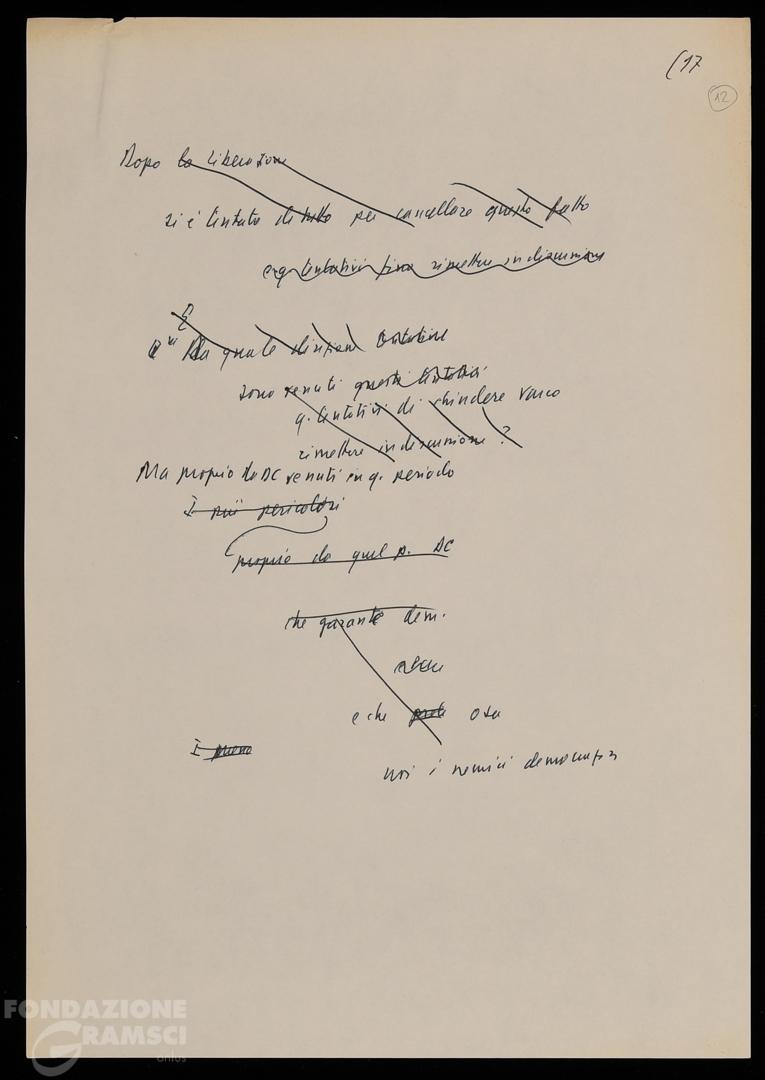 (17
12
Dopo la Liberazione
si è tentato di tutto per cancellare questo fatto
tentativi fino rimettere in discussione
E
Da quale direzione
sono venuti questi tentativi
q. tentativi di chiudere varco
rimettere in discussione ?
Ma proprio da DC venuti in q. periodo
I più pericolosi
proprio da quel p. DC
che garante dem.
e che osa
I
noi i nemici democrazia
FONDAZIONE
GRAMSCI
onlus